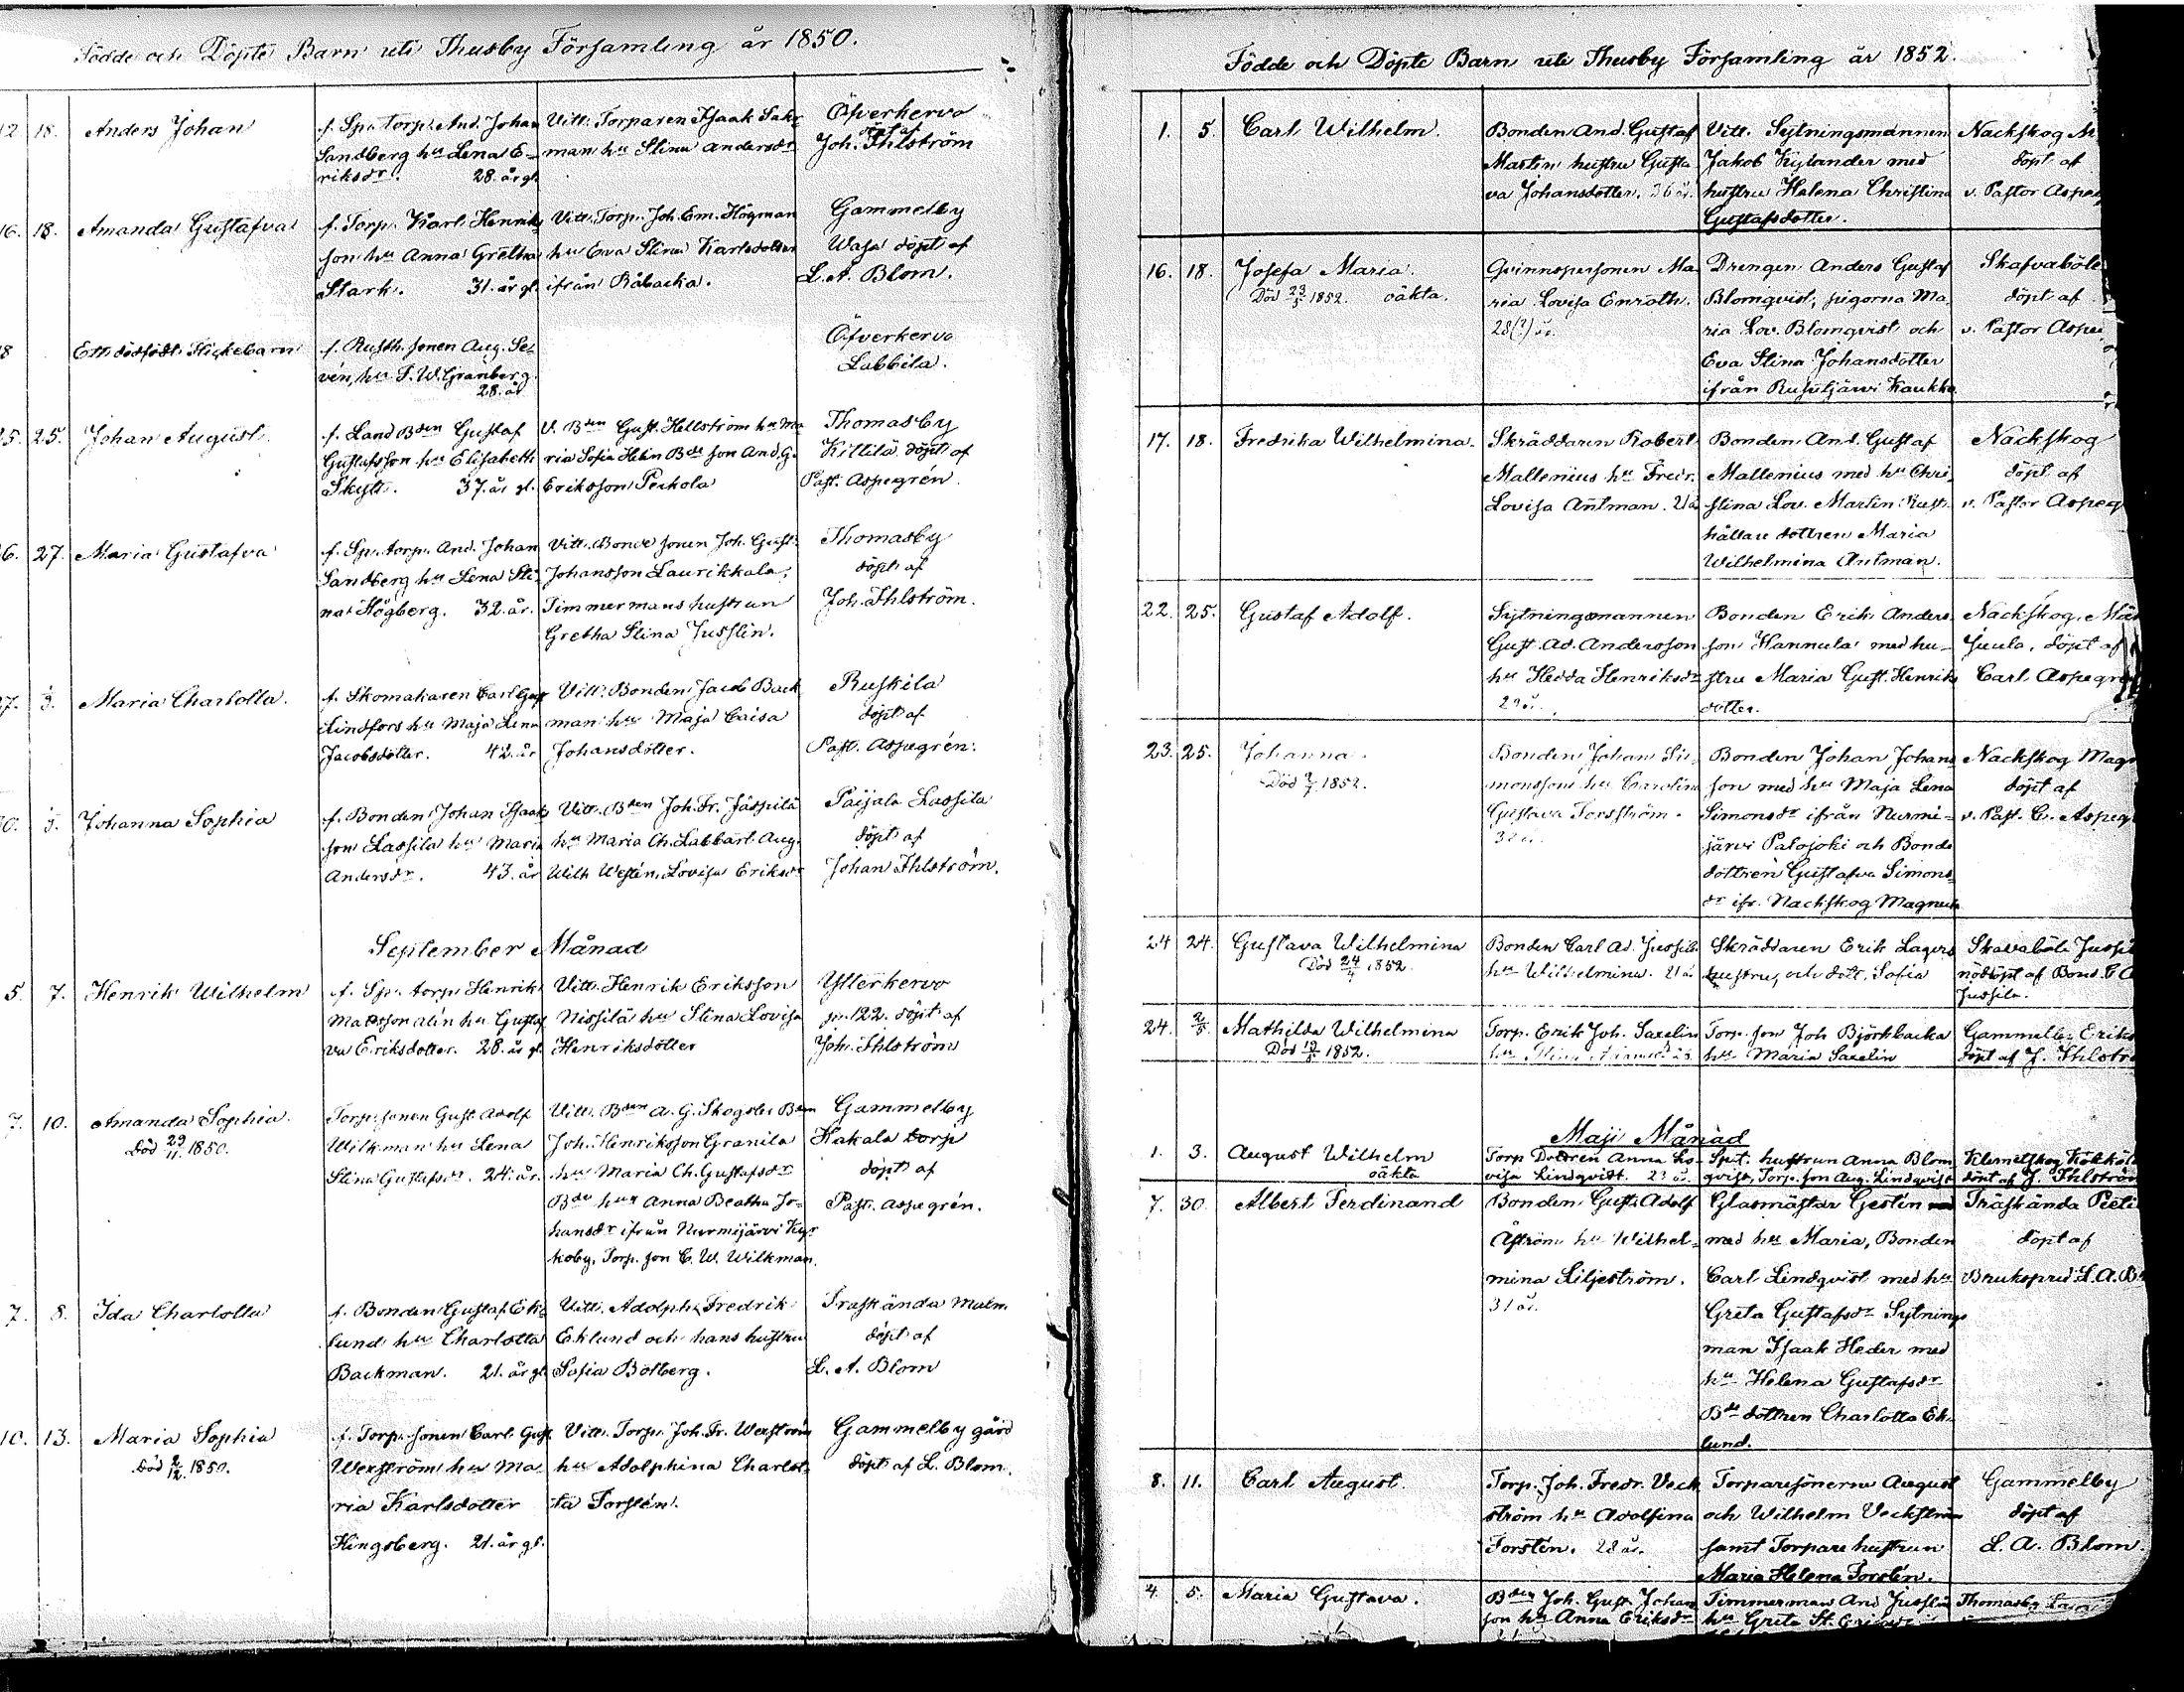 Födde och Döpte Barn uti Thusby Församling år 1850.
12. 18. Anders Johan
f. Sp. Torp. And. Johan
Sandberg hu Lena E-
riksdr. 28. år gl.
Vitt. Torparen Isaak Sakr
man hu Stina Andersdr
Öfverkervo
döpt af
Joh. Ihlström
16. 18. Amanda Gustafva
f. Torp. Karl Henriks
son hu Anna Gretha
Stark. 31. år gl.
Vitt. Torp. Joh. Em. Högman
hu Eva Stina Karlsdotter
ifrån Råbacka.
Gammelby
Wasa döpt af
L. A. Blom.
18 Ett dödfödt flickebarn
f. Rusth. sonen Aug. Se-
vén, hu S. W. Granberg.
28. år
Öfverkervo
Labbila.
25. 25. Johan August.
f. Land Bden Gustaf
Gustafsson hu Elisabeth
Skytt. 37. år gl.
V. Bden Gust. Hellström hu Ma
ria Sofia Helin Bde son And. G.
Eriksson Peckola
Thomasby
Kittilä döpt af
Past. Aspegrén.
26. 27. Maria Gustafva
f. Sp. torp. And. Johan
Sandberg hu Lena Sti-
na Högberg. 32. år.
Vitt. Bonde sonen Joh. Gust.
Johansson Laurikkala,
Timmermans hustrun
Gretha Stina Jusslin.
Thomasby
döpt af
Joh. Ihlström.
27. 1/9. Maria Charlotta.
f. Skomakaren Carl Gust
Lindfors hu Maja Lena
Jacobsdotter. 42. år
Vitt. Bonden Jacob Back
man hu Maja Caisa
Johansdotter.
Ruskila
döpt af
Past. Aspegrén.
30. Johanna Sophia
f. Bonden Johan Isaaks
son Lassila hu Maria
Andersdr. 43. år
Vitt. Bden Joh. Fr. Jäspilä
hu Maria Ch. Labbart. Aug.
Wilh Wesén, Lovisa Eriksdr
Paijala Lassila
döpt af
Johan Ihlström.
September Månad
5. 7. Henrik Wilhelm
f. Sp. torp. Henrik
Matsson Alén hu Gustaf
va Eriksdotter. 28. år gl.
Vitt. Henrik Eriksson
Nissilä hu Stina Lovisa
Henriksdotter
Ytterkervo
p. 122. döpt af
Joh. Ihlström
7. 10. Amanda Sophia.
Död 29/11 1850.
Torp. sonen Gust. Adolf
Wilkman hu Lena
Stina Gustafsdr. 24. år.
Vitt. Bden A. G. Skogster Bden
Joh. Henriksson Granila
hu Maria Ch. Gustafsdr
Bde hu Anna Beatha Jo-
hansdr ifrån Nurmijärvi Kyr
koby, Torp. son C. W. Wilkman.
Gammelby
Hakala torp
döpt af
Past. Aspegrén.
7. 8. Ida Charlotta
f. Bonden Gustaf Ek-
lund hu Charlotta
Backman. 21. år gl.
Vitt. Adolph Fredrik
Eklund och hans hustru
Sofia Bolberg.
Träskända Malm.
döpt af
L. A. Blom
10. 13. Maria Sophia
Död 2/12. 1850.
f. Torp. sonen Carl Gust
Wexström hu Ma
ria Karlsdotter
Hingsberg. 21. år gl.
Vitt. Torp. Joh. Fr. Wexström
hu Adolphina Charlot
ta Forstén.
Gammelby gård
döpt af L. Blom.
Födde och Döpte Barn uti Thusby Församling år 1852.
1. 5. Carl Wilhelm.
Bonden And. Gustaf
Martin hustru Gusta
va Johansdotter. 36 år.
Vitt. Sytningsmannen
Jakob Kylander med
hustru Helena Christina
Gustafsdotter.
Nackskog
döpt af
v. Pastor Aspeg
16. 18. Josefa Maria.
Död 23/5 1852. oäkta.
Qvinnspersonen Ma
ria Lovisa Enroth.
28(?) år.
Drengen Anders Gustaf
Blomqvist, pigorna Ma
ria Lov. Blomqvist och
Eva Stina Johansdotter
ifrån Rusutjärvi Kaukka
Skafvaböle
döpt af
v. Pastor Aspe
17. 18. Fredrika Wilhelmina.
Skräddaren Robert
Mallenius hu Fredr.
Lovisa Antman. 21 å
Bonden And. Gustaf
Mallenius med hu Chri-
stina Lov. Martin Rust-
hållare dottren Maria
Wilhelmina Antman.
Nackskog
döpt af
v. Pastor Aspeg
22. 25. Gustaf Adolf.
Sytningsmannen
Gust. Ad. Andersson
hu Hedda Henriksdr
29 år.
Bonden Erik Anders
son Hannula med hu-
stru Maria Gust. Henriks
dotter.
Nackskog. Mä
juula, döpt af
Carl Aspegr
23. 25. Johanna.
Död 9/7 1852.
Bonden Johan Si-
monsson hu Carolina
Gustava Forsström.
32 år.
Bonden Johan Johans
son med hu Maja Lena
Simonsdr ifrån Nurmi-
järvi Palojoki och Bonde
dottren Gustafva Simons-
dr ifr. Nackskog Magnula
Nackskog Magn
döpt af
v. Past. C. Aspeg
24 24. Gustava Wilhelmina
Död 24/4 1852.
Bonden Carl Ad. Jussila
hu Wilhelmina. 21 å
Skräddaren Erik Lagers
hustru, och dott. Sofia
Skavaböle Jussil
nödöpt af Bond. C. A
Jussila.
24. 2/5. Mathilda Wilhelmina
Död 19/5 1852.
Torp. Erik Joh. Saxelin
Torp. son Joh Björkbacka
hu Maria Saxelin
Gammelby Eriks
döpt af J. Ihlströ
Maji Månad
1. 3. August Wilhelm
oäkta
Torp Dottren Anna Lo-
visa Lindqvist. 23 år.
Spt. hustrun Anna Blom
qvist, Torp. son Aug. Lindqvist
Klemetskog Kolkköl
döpt af J. Ihlström
7. 30. Albert Ferdinand
Bonden Gust. Adolf
Åström hu Wilhel-
mina Liljeström.
31 år.
Glasmästar Gestén
med hu Maria, Bonden
Carl Lindqvist med hu
Greta Gustafsdr Sytnings
man Isaak Heder med
hu Helena Gustafsdr
Bde dottren Charlotta Ek-
lund.
Träskända Pieti
döpt af
Brukspred L. A. B
8. 11. Carl August.
Torp. Joh. Fredr. Veck
ström hu Adolfina
Forstén. 28 år.
Torparesönerna August
och Wilhelm Veckström
samt Torpare hustrun
Maria Helena Forstén.
Gammelby
döpt af
L. A. Blom.
4. 5. Maria Gustava.
Bden Joh. Gust. Johans
son hu Anna Eriksdr
Timmerman And Jusslin
hu Greta St.
Thomasby